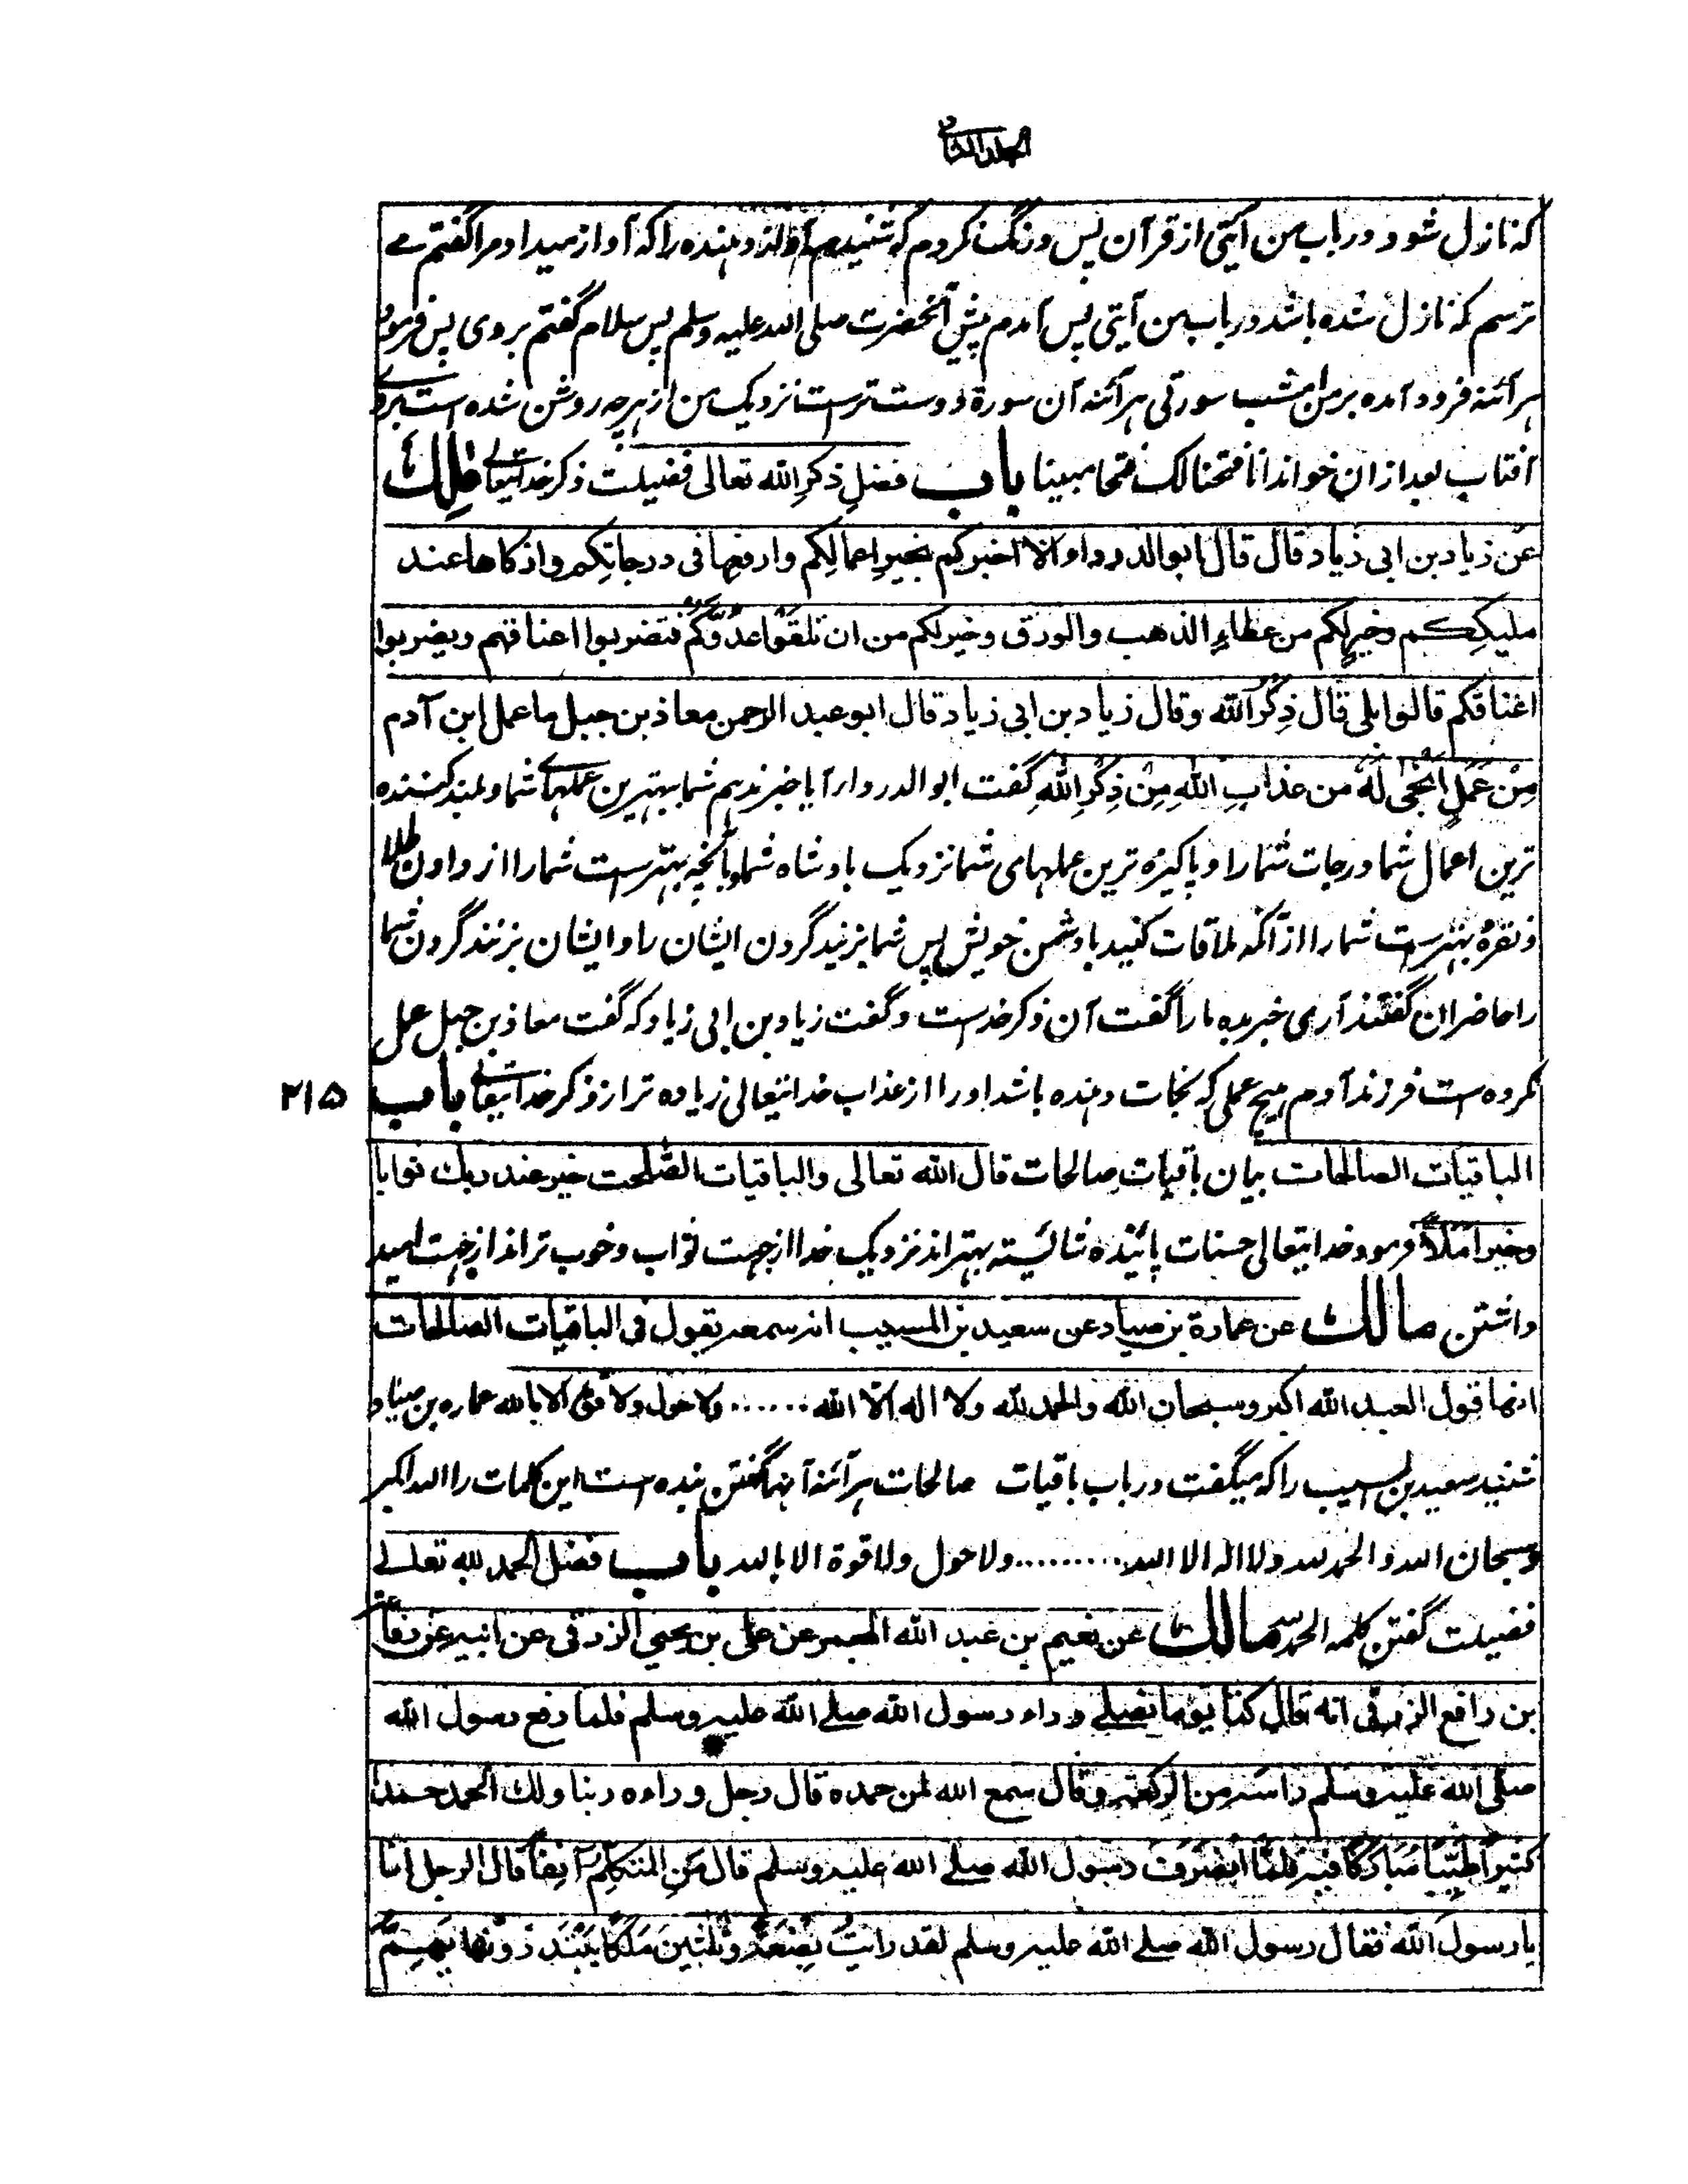 الجلد الثانی
که نازل شود در باب من آیتی از قرآن پس درنگ نکردم که شنیدم آواز دهنده را که آواز میداد مرا گفتم مے
ترسم که نازل شده باشد در باب من آیتی پس آمدم پیش آنحضرت صلی الله علیه وسلم پس سلام گفتم بر وی پس فرمود
هر آئنه فرود آمده بر من امشب سورتی هر آئنه آن سورة دوست ترست نزدیک من از هر چه روشن شده است بروے
آفتاب بعد ازان خواند انا فتحنا لک فتحا مبینا باب فضل ذکر الله تعالی فضیلت ذکر خدایتعالے مالك
عن زیاد بن ابی زیاد قال قال ابو الدرداء الا اخبرکم بخیر اعمالکم وارفعها فی درجاتکم وازکاها عند
ملیککم وخیر لکم من عطاء الذهب والورق وخیر لکم من ان تلقوا عدوکم فتضربوا اعناقهم ویضربوا
اعناقکم قالوا بلی قال ذکر الله وقال زیاد بن ابی زیاد قال ابو عبد الرحمن معاذ بن جبل ما عمل ابن آدم
من عمل انجی له من عذاب الله من ذکر الله گفت ابو الدرداء آیا خبر ندهم شما بهترین عملهاے شما و بلند کننده
ترین اعمال شما درجات شما را و پاکیزه ترین عملهای شما نزدیک بادشاه شما و بآنچه بهترست شما را از دادن طلا
و نقره بهترست شما را ازانکه ملاقات کنید با دشمن خویش پس شما بزنید گردن ایشان را و ایشان بزنند گردن شما
را حاضران گفتند آری خبر بده ما را گفت آن ذکر خدست و گفت زیاد بن ابی زیاد که گفت معاذ بن جبل عمل
نکرده است فرزند آدم هیچ عملی که نجات دهنده باشد او را از عذاب خدایتعالی زیاده تر از ذکر خدایتعالے باب
۲۱۵
الباقیات الصالحات بیان باقیات صالحات قال الله تعالی والباقیات الصلحت خیر عند ربك ثوابا
وخیر املاً فرمود خدایتعالی حسنات پائنده شائسته بهتر اند نزدیک خدا از جهت ثواب و خوب تر اند از جهت امید
داشتن مالك عن عمارة بن صیاد عن سعید بن المسیب انه سمعه یقول فی الباقیات الصالحات
انها قول العبد الله اکبر وسبحان الله والحمد لله ولا اله الا الله ...... ولا حول ولا قوة الا بالله عماره بن صیاد
شنید سعید بن المسیب را که میگفت در باب باقیات صالحات هر آئنه آنها گفتن بنده است این کلمات را الله اکبر
وسبحان الله والحمد لله ولا اله الا الله ......... ولا حول ولا قوة الا بالله باب فضل الحمد لله تعالے
فضیلت گفتن کلمه الحمد لله مالك عن نعیم بن عبد الله المجمر عن علی بن یحیی الزرقی عن ابیه عن رفاعة
بن رافع الزرقی انه قال کنا یوما نصلے وراء رسول الله صلے الله علیه وسلم فلما رفع رسول الله
صلی الله علیه وسلم راسه من الرکعة وقال سمع الله لمن حمده قال رجل وراءه ربنا ولك الحمد حمدا
کثیراً طیباً مبارکاً فیه فلما انصرف رسول الله صلے الله علیه وسلم قال من المتکلم آنفاً قال الرجل انا
یا رسول الله فقال رسول الله صلے الله علیه وسلم لقد رایت بضعة وثلثین ملکاً یبتدرونها ایهم